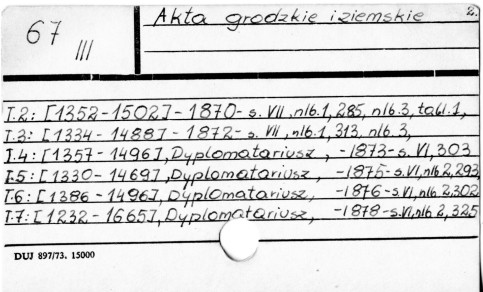 67 III
Akta grodzkie i ziemskie 2.
T.2: [1352-1502] - 1870 - s. VII, nlb.1, 285, nlb.3, tabl.1,
T.3: [1334-1488] - 1872 - s. VII, nlb.1, 313, nlb.3,
T.4: [1357-1496], Dyplomatariusz, -1873-s. VI, 303
T.5: [1330-1469], Dyplomatariusz, -1875-s. VI, nlb 2, 293
T.6: [1386-1496], Dyplomatariusz, -1876-s. VI, nlb. 2, 302
T.7: [1232-1665], Dyplomatariusz, -1878-s. VI, nlb 2, 325
DUJ 897/73. 15000